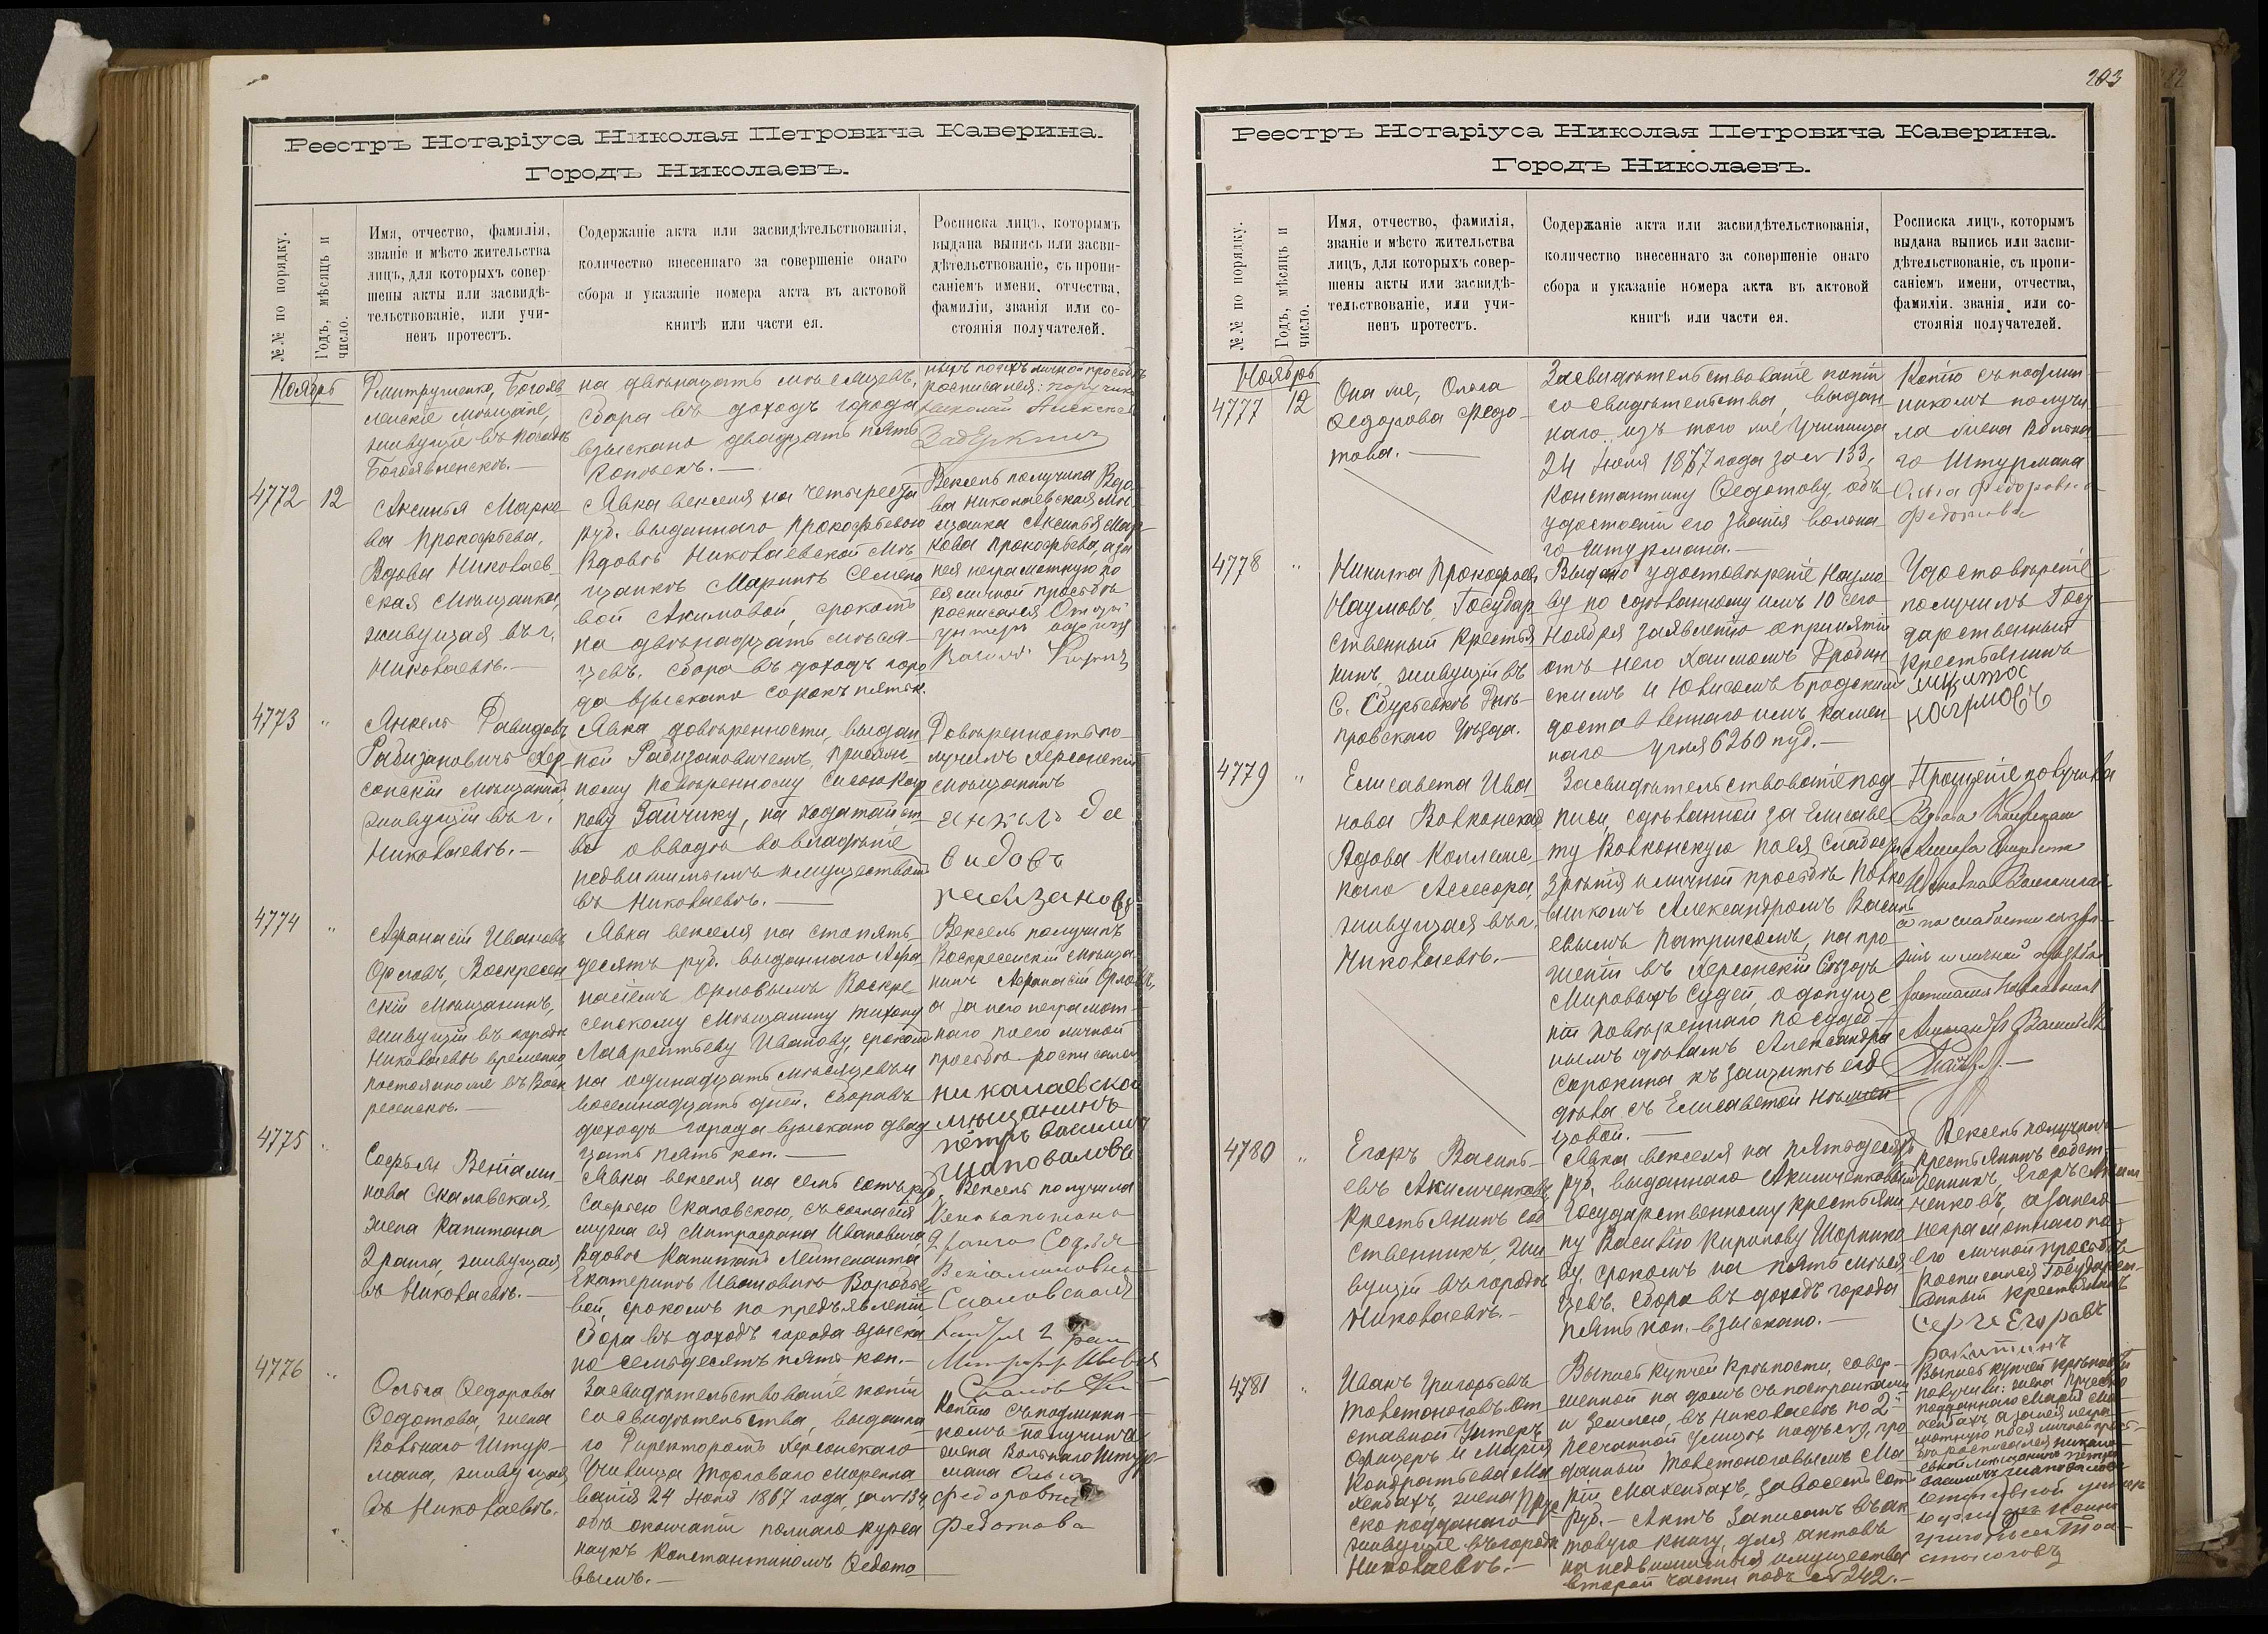 Реестръ Нотаріуса Николая Петровича Каверина.
Городъ Николаевъ.
№№ по порядку.
Годъ, мѣсяцъ и
число.
Имя, отчество, фамилія,
званіе и мѣсто жительства
лицъ, для которыхъ совер-
шены акты или засвидѣ-
тельствованіе, или учи-
ненъ протестъ.
Содержаніе акта или засвидѣтельствованія,
количество внесеннаго за совершеніе онаго
сбора и указаніе номера акта въ актовой
книгѣ или части ея.
Росписка лицъ, которымъ
выдана выпись или засви-
дѣтельствованіе, съ пропи-
саніемъ имени, отчества,
фамиліи, званія или со-
стоянія получателей.
Ноябрь
Дмитрушенко, Богояв
ленскіе мѣщане,
живущіе въ посадѣ
Богоявленскѣ.—
на двѣнадцать мѣсяцевъ,
сбора въ доходъ города
взыскано двадцать пять
копѣекъ.—
росписался:
Николай
4772
12
Аксинья Марко-
ва Прокофьева,
Вдова Николаев-
ская Мѣщанка,
живущая въ г.
Николаевѣ.—
Явка векселя на четыреста
руб. выданнаго Прокофьевою
Вдовѣ Николаевской Мѣ-
щанкѣ Маринѣ Семено-
вой Акимовой, срокомъ
на двѣнадцать мѣся-
цевъ. Сбора въ доходъ горо
да взыскано сорокъ пять к.
Вексель получила Вдо-
ва Николаевская Мѣ-
щанка Аксинья Мар-
кова Прокофьева, а за
нея неграмотную по
ея личной просьбѣ
росписался
4773
"
Анкель Давидовъ
Рабизановичъ Хер-
сонскій мѣщанинъ,
живущій въ г.
Николаевѣ.—
Явка довѣренности, выдан
ной Рабизановичемъ, Присяж-
ному Повѣренному
Зайчику, на ходатайст-
во о вводѣ во владѣніе
недвижимымъ имуществомъ
въ Николаевѣ.—
Довѣренность по-
лучилъ Херсонскій
мѣщанинъ
видовъ
4774
"
Афанасій Ивановъ
Орловъ, Воскресен
скій Мѣщанинъ,
живущій въ городѣ
Николаевѣ временно,
постоянно же въ Воск
ресенскѣ.—
Явка векселя на сто пять
десятъ руб. выданнаго Афа
насіемъ Орловымъ Воскре
сенскому Мѣщанину Тихону
Лаврентьеву Иванову, срокомъ
на одинадцать мѣсяцевъ и
восемнадцать дней. Сбора въ
доходъ города взыскано двад
цать пять коп.—
Вексель получилъ
Воскресенскій Мѣща-
нинъ Афанасій Орловъ,
а за него неграмот-
наго по его личной
просьбѣ росписался
николаевской
мещанинъ
петръ василивъ
шаповаловъ
4775
Софья Веніами-
нова Скаловская,
жена Капитана
2 ранга, живущая
въ Николаевѣ.—
Явка векселя на семь сотъ руб.
Софьею Скаловскою, съ согласія
мужа ея Митрофана Ивановича,
Вдовѣ Капитана Лейтенанта
Екатеринѣ Ивановнѣ Воробье-
вой, срокомъ по предъявленіи,
Сбора въ доходъ города взыска
но семьдесятъ пять коп.—
Вексель получила
Жена капитана
2 ранга Софья
Веніаминовна
Скаловская
4776
Ольга Ѳедорова
Ѳедотова, жена
Вольнаго Штур-
мана, живущая
въ Николаевѣ.
Засвидѣтельствованіе копіи
со свидѣтельства, выданна
го Директоромъ Херсонскаго
Училища ТорговагоМорепла
ванія 24 Іюля 1867 года, за № 134,
объ окончаніи полнаго курса
наукъ Константиномъ Ѳедото
вымъ.—
Копію съ подлинни-
комъ получила
жена Вольнаго Штур-
мана Ольга
Федоровна
Федотова
203
Реестръ Нотаріуса Николая Петровича Каверина.
Городъ Николаевъ.
№№ по порядку.
Годъ, мѣсяцъ и
число.
Имя, отчество, фамилія,
званіе и мѣсто жительства
лицъ, для которыхъ совер-
шены акты или засвидѣ-
тельствованіе, или учи-
ненъ протестъ.
Содержаніе акта или засвидѣтельствованія,
количество внесеннаго за совершеніе онаго
сбора и указаніе номера акта въ актовой
книгѣ или части ея.
Росписка лицъ, которымъ
выдана выпись или засви-
дѣтельствованіе, съ пропи-
саніемъ имени, отчества,
фамиліи, званія или со-
стоянія получателей.
Ноябрь
4777
12
Она же, Ольга
Ѳедорова Ѳедо-
това.—
Засвидѣтельствованіе копіи
со свидѣтельства, выдан-
наго изъ того же Училища
24 Іюля 1867 года за № 133,
Константину Ѳедотову, объ
удостоеніи его званія вольна-
го штурмана.—
Копію съ подлин-
никомъ получи-
ла жена Вольна-
го Штурмана
Ольга Федоровна
Федотова
4778
"
Никита Прокофьевъ
Наумовъ, Государ
ственный крестья
нинъ, живущій въ
Днѣ-
провскаго Уѣзда.
Выдано удостовѣреніе Наумо
ву по сдѣланному имъ 10 сего
Ноября заявленію о принятіи
отъ него Хаимомъ Гродин
скимъ и Бродскимъ
доставленнаго имъ камен
наго угля 6260 пуд.—
Удостовѣреніе
получилъ Госу
дарственный
крестьянинъ
4779
"
Елисавета Ива
нова Волконская
Вдова Коллеже
каго Асессора,
живущая въ г.
Николаевѣ.—
Засвидѣтельствованіе под
писи, сдѣланной за Елисаве
ту Волконскую по ея слабости
зрѣнія и личной просьбѣ Полко
вникомъ Александромъ Василь
евымъ на про
шеніи въ Херсонскій Съѣздъ
Мировыхъ Судей, о допуще
ніи повѣреннаго по судеб-
нымъ дѣламъ Александра
Сорокина къ защитѣ его
дѣла съ Елисаветой
цовой.—
Прошеніе получила
Вдова
Ивановна Волконская
а по слабости ея зрѣ-
нія и личной просьбѣ
4780
"
Егоръ Василь-
евъ Акимченковъ,
Крестьянинъ соб
ственникъ, жи
вущій въ городѣ
Николаевѣ.—
Явка векселя на пятьдесятъ
руб. выданнаго Акимченковымъ
Государственному Крестьяни
ну Василію Кирилову
ву, срокомъ на пять мѣся
цевъ. Сбора въ доходъ города
пять коп. взыскано.—
Вексель получилъ
Крестьянинъ собст-
венникъ, Егоръ Аким-
ченковъ, а за него
неграмотнаго по
его личной просьбѣ
росписался Государст-
венный крестьянинъ
Егоровъ
4781
"
Иванъ Григорьевъ
Толстоноговъ От
ставной Унтеръ
Офицеръ и Марія
Кондратьева Ма
жена Прус
ско подданаго
живущіе въ городѣ
Николаевѣ.—
Выпись Купчей Крѣпости, совер-
шенной на домъ съ постройками
и землею, въ Николаевѣ по 2й
Песчанной улицѣ, про
данный Толстоноговымъ Ма
ріи за восемь сотъ
руб.— Актъ записанъ въ ак
товую книгу, для актовъ
на недвижимыя имущества
второй части подъ № 242.—
Выпись купчей крѣпости
получили: жена Прусско
подданнаго Марія
а за нея негра-
мотную по ея личной прось-
бѣ росписался никола-